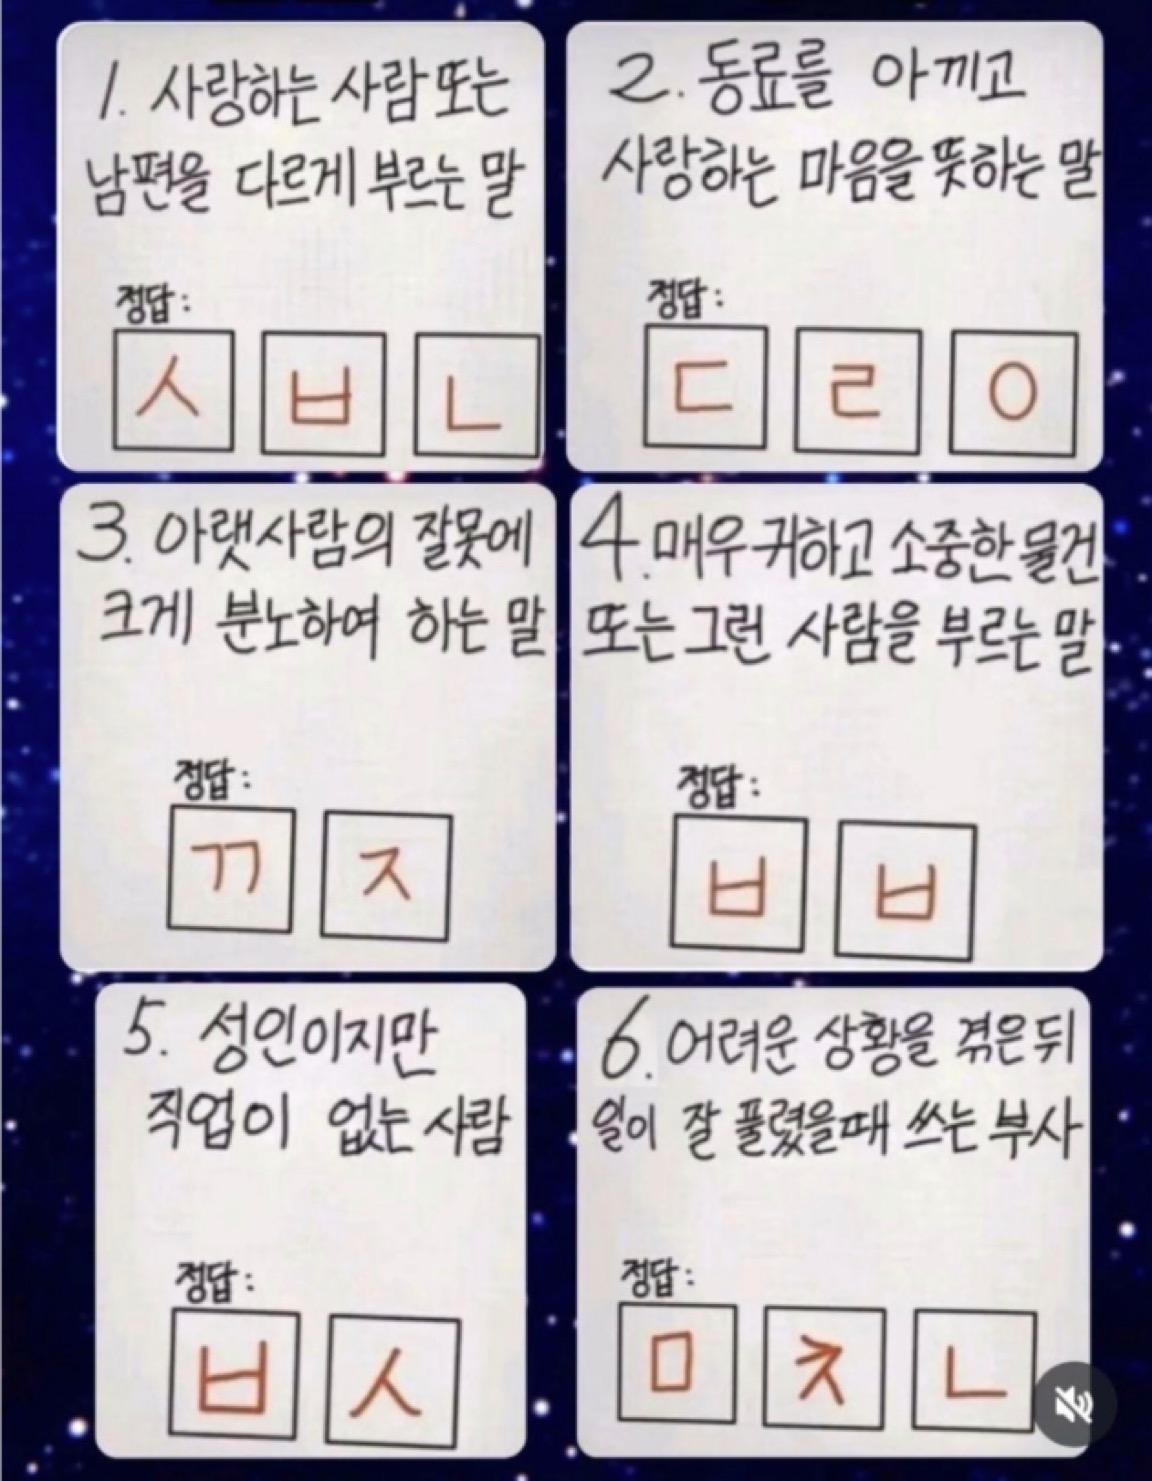 1. 사랑하는 사람 또는
남편을 다르게 부르는 말
정답:
ㅅ ㅂ ㄴ
2. 동료를 아끼고
사랑하는 마음을 뜻하는 말
정답:
ㄷ ㄹ ㅇ
3. 아랫사람의 잘못에
크게 분노하여 하는 말
정답:
ㄲ ㅈ
4. 매우 귀하고 소중한 물건
또는 그런 사람을 부르는 말
정답:
ㅂ ㅂ
5. 성인이지만
직업이 없는 사람
정답:
ㅂ ㅅ
6. 어려운 상황을 겪은 뒤
일이 잘 풀렸을때 쓰는 부사
정답:
ㅁ ㅊ ㄴ